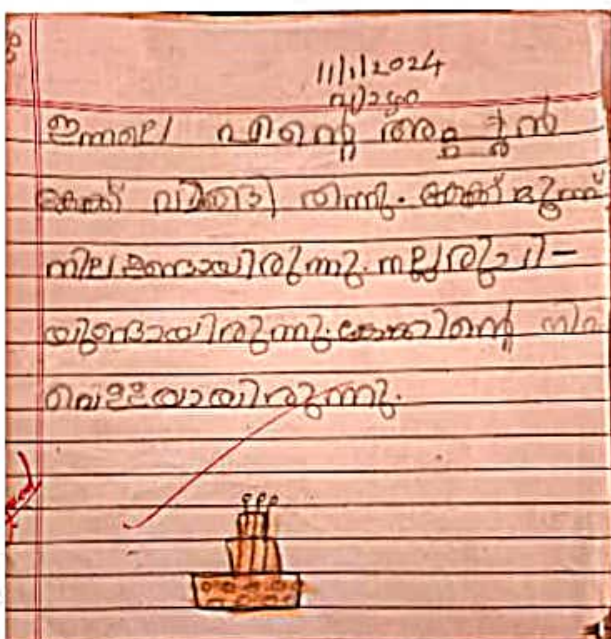 11/1/2024
വ്യാഴം
ഇന്നലെ എന്റെ അപ്പൂപ്പൻ
കേക്ക് വാങ്ങി തിന്നു. കേക്ക് മൂന്ന്
നിലഉണ്ടായിരുന്നു. നല്ലരുചി-
യുണ്ടായിരുന്നു. കേക്കിന്റെ നിറ
വെള്ളയായിരുന്നു.